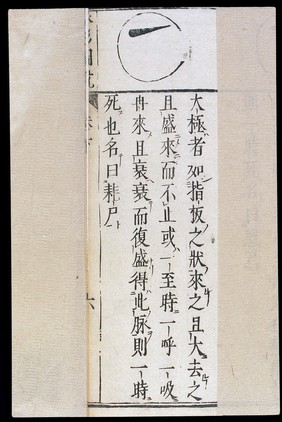 大極者如指板之狀來之且大去之
且盛來而不止或一至時一呼一吸
冉來且衰衰而復盛得此脉則一時
死也名曰耗尸
六